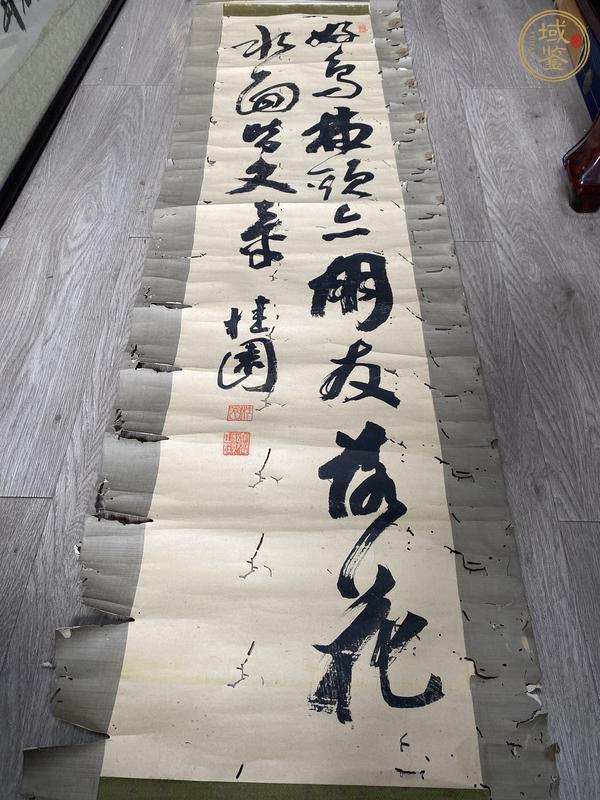 好鳥枝頭亦朋友落花
水面皆文章
桂園
域鉴